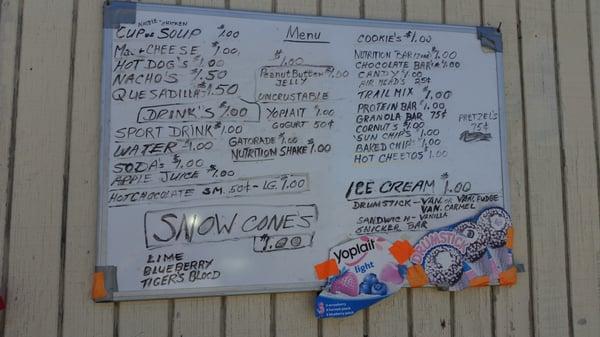 NOODLE-CHICKEN
CUP OF SOUP $1.00
MAC + CHEESE $1.00
HOT DOG'S $1.00
NACHO'S $1.50
QUESADILLA $1.50
DRINK'S $1.00
SPORT DRINK $1.00
WATER $1.00
SODA'S $1.00
APPLE JUICE $1.00
HOT CHOCOLATE SM. 50¢ - LG. $1.00
SNOW CONE'S
$1.00
LIME
BLUEBERRY
TIGER'S BLOOD
Menu
$1.00
Peanut Butter $1.00
JELLY
UNCRUSTABLE
YOPLAIT $1.00
GOGURT 50¢
GATORADE $1.00
NUTRITION SHAKE $1.00
COOKIE'S $1.00
NUTRITION BAR $1.00
CHOCOLATE BAR $1.00
CANDY $1.00
AIR HEADS 25¢
TRAIL MIX $1.00
PROTEIN BAR $1.00
GRANOLA BAR 75¢
CORNUT'S $1.00
SUN CHIPS $1.00
BAKED CHIPS $1.00
HOT CHEETOS $1.00
PRETZEL'S
75¢
ICE CREAM $1.00
DRUMSTICK - VAN. OR VAN. FUDGE
VAN. CARMEL
SANDWICH - VANILLA
SNICKER BAR
Yoplait
light
DRUMSTICK